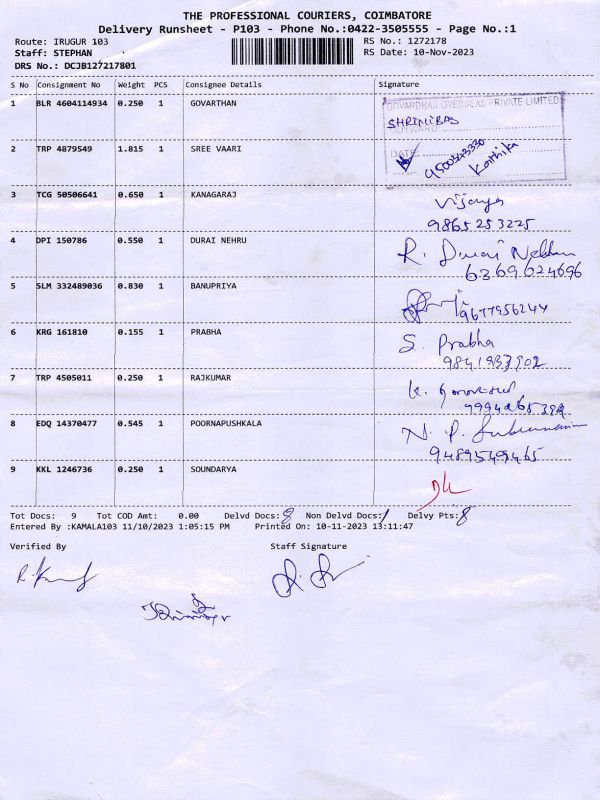 THE PROFESSIONAL COURIERS, COIMBATORE
Delivery Runsheet - P103 - Phone No.:0422-3505555 - Page No.:1
Route: IRUGUR 103 RS No.: 1272178
Staff: STEPHAN RS Date: 10-Nov-2023
DRS No.: DCJB127217801
S No Consignment No Weight PCS Consignee Details Signature
1 BLR 4604114934 0.250 1 GOVARTHAN
GOVARDHAN OVERSEAS PRIVATE LIMITED
SHRINIBAS
OUTWARD
DATE:
Karthika
2 TRP 4879549 1.815 1 SREE VAARI
3 TCG 50506641 0.650 1 KANAGARAJ
Vijaya
9865253225
4 DPI 150786 0.550 1 DURAI NEHRU
R. Durai Nehru
6369624696
5 SLM 332489036 0.830 1 BANUPRIYA
9677956244
6 KRG 161810 0.155 1 PRABHA
S. Prabha
9841933902
7 TRP 4505011 0.250 1 RAJKUMAR
8 EDQ 14370477 0.545 1 POORNAPUSHKALA
N. P. Subramaniam
9489549465
9 KKL 1246736 0.250 1 SOUNDARYA
Tot Docs: 9 Tot COD Amt: 0.00 Delvd Docs: 8 Non Delvd Docs: 1 Delvy Pts: 8
Entered By :KAMALA103 11/10/2023 1:05:15 PM Printed On: 10-11-2023 13:11:47
Verified By Staff Signature